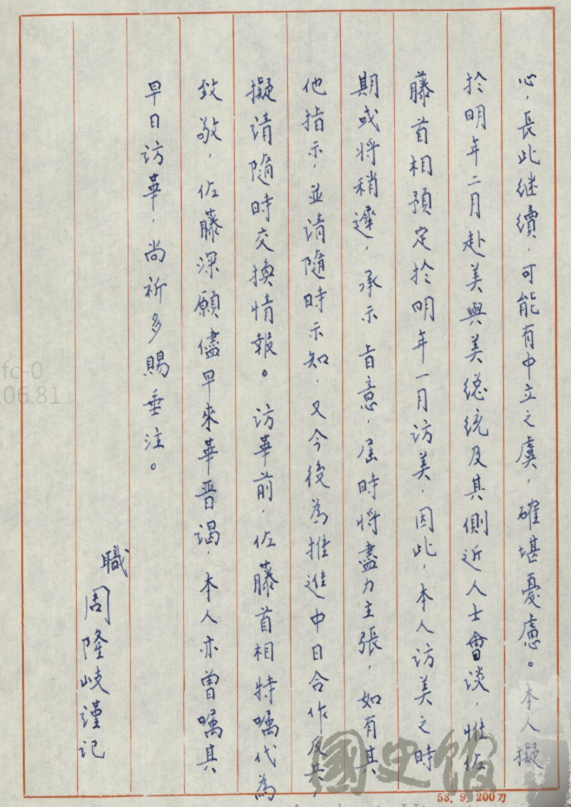 心，長此继續，可能有中立之虞，確堪憂慮。本人擬
於明年二月赴美與美總統及其側近人士會談，惟佐
藤首相預定於明年一月訪美，因此，本人訪美之時
期或将稍遲，承示旨意，屆時将盡力主張，如有其
他指示，並请隨時示知，又今後為推進中日合作及共，
擬请隨時交換情報。訪華前，佐藤首相特囑代為
致敬，佐藤深願儘早來華晋謁，本人亦曾囑其
早日訪華，尚祈多賜垂注。
職
周隆岐謹记
國史館
53. 9. 200刀
fc-0
06.81